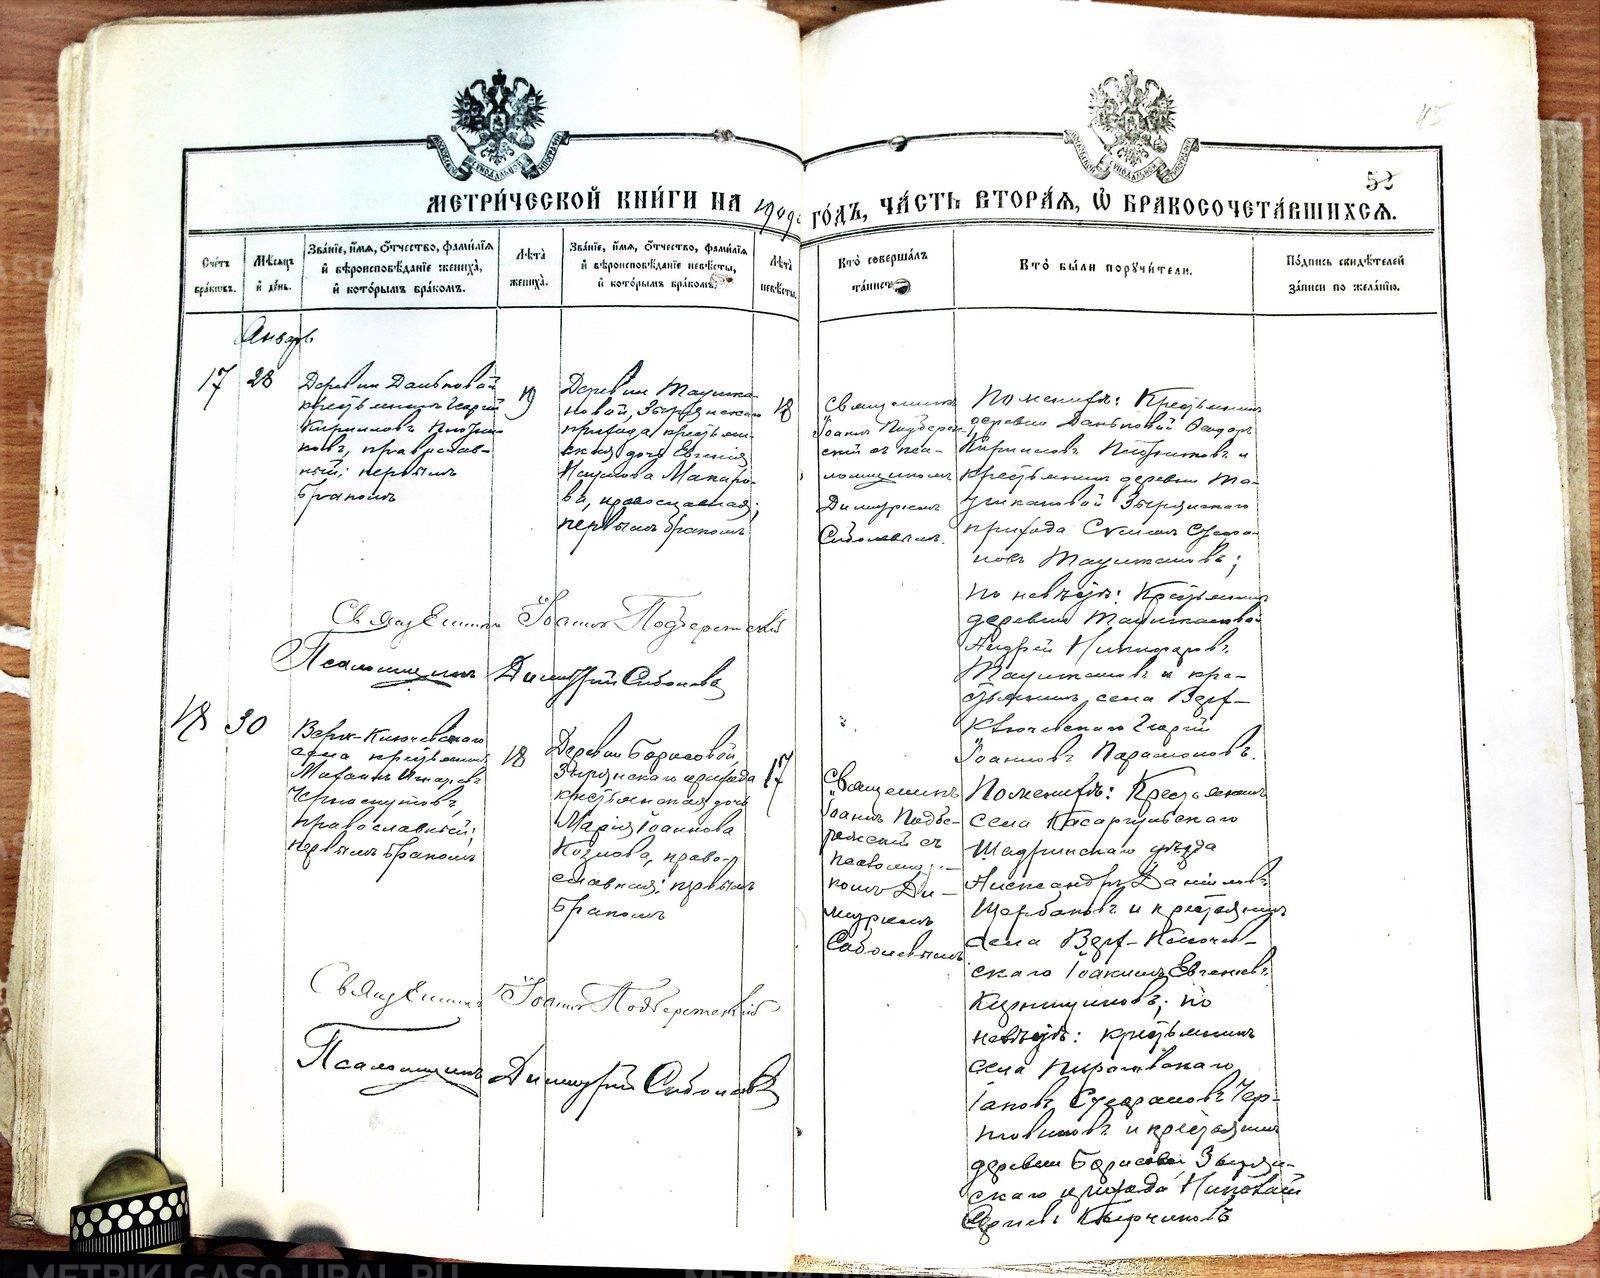 45
52
МЕТРИ́ЧЕСКОЙ КНИ́ГИ НА 1909 ГО́ДЪ, ЧА́СТЬ ВТОРА́Я, Ѡ БРАКОСОЧЕТА́ВШИХСЯ.
Сче́тъ бра́ковъ.
Мѣ́сяцъ и́ де́нь.
Зва́нїе, и́мя, ѻ҆́тчество, фами́лїя и҆ вѣроисповѣ́данїе жениха̀, и҆ кото́рымъ бра́комъ.
Лѣ́та жениха̀.
Зва́нїе, и́мя, ѻ҆́тчество, фами́лїя и҆ вѣроисповѣ́данїе невѣ́сты, и҆ кото́рымъ бра́комъ.
Лѣ́та невѣ́сты.
Кто̀ соверша́лъ та́инст
Кто̀ бы́ли порꙋчи́тели.
По́дпись свидѣ́телей за́писи по жела́нїю.
Январь
17
28
Деревни Даньковой
крестьянинъ Георгій
Кирилловъ
православ-
ный; первымъ
бракомъ
19
Деревни Таушка-
новой, Зырянскаго
прихода крестьян-
ская дочь Евгенія
Наумова Макаро-
ва, православная;
первымъ бракомъ
18
Священникъ
Іоаннъ Подбереж-
скій съ пса-
ломщикомъ
Димитріемъ
Соболевымъ.
По женихѣ: Крестьянинъ
деревни Даньковой Ѳеодоръ
Кирилловъ и
крестьянинъ деревни Та-
ушкановой Зырянскаго
прихода Стефа-
новъ Таушкановъ;
по невѣстѣ: Крестьянинъ
деревни Таушкановой
Андрей Никифоровъ
Таушкановъ и кре-
стьянинъ села Верх-
Ключевскаго Георгій
Іоанновъ Парамоновъ.
Священникъ Іоаннъ Подбережскій
Псаломщикъ Димитрій Соболевъ
18
30
Верх-Ключевскаго
села крестьянинъ
Михаилъ
православный;
первымъ бракомъ
18
Деревни Борисовой,
Зырянскаго прихода
крестьянская дочь
Марія Іоаннова
Козлова, право-
славная; первымъ
бракомъ
17
Священникъ
Іоаннъ Подбе-
режскій съ
псаломщи-
комъ Ди-
митріемъ
Соболевымъ
По женихѣ: Крестьянинъ
села Касаргульскаго
Шадринскаго уѣзда
Александръ Даніиловъ
Щербаковъ и крестьянинъ
села Верх-Ключев-
скаго Іоакимъ Евгеніевъ
по
невѣстѣ: крестьянинъ
села Пироговскаго
Іаковъ Стефановъ
и крестьянинъ
деревни Борисовой Зырян-
скаго прихода Николай
Священникъ Іоаннъ Подбережскій
Псаломщикъ Димитрій Соболевъ
METRIKI.GASO-URAL.RU